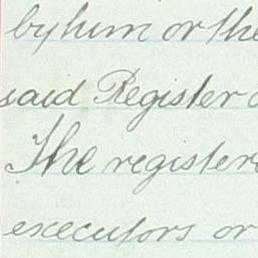 by him or the
said Register
The register
executors or